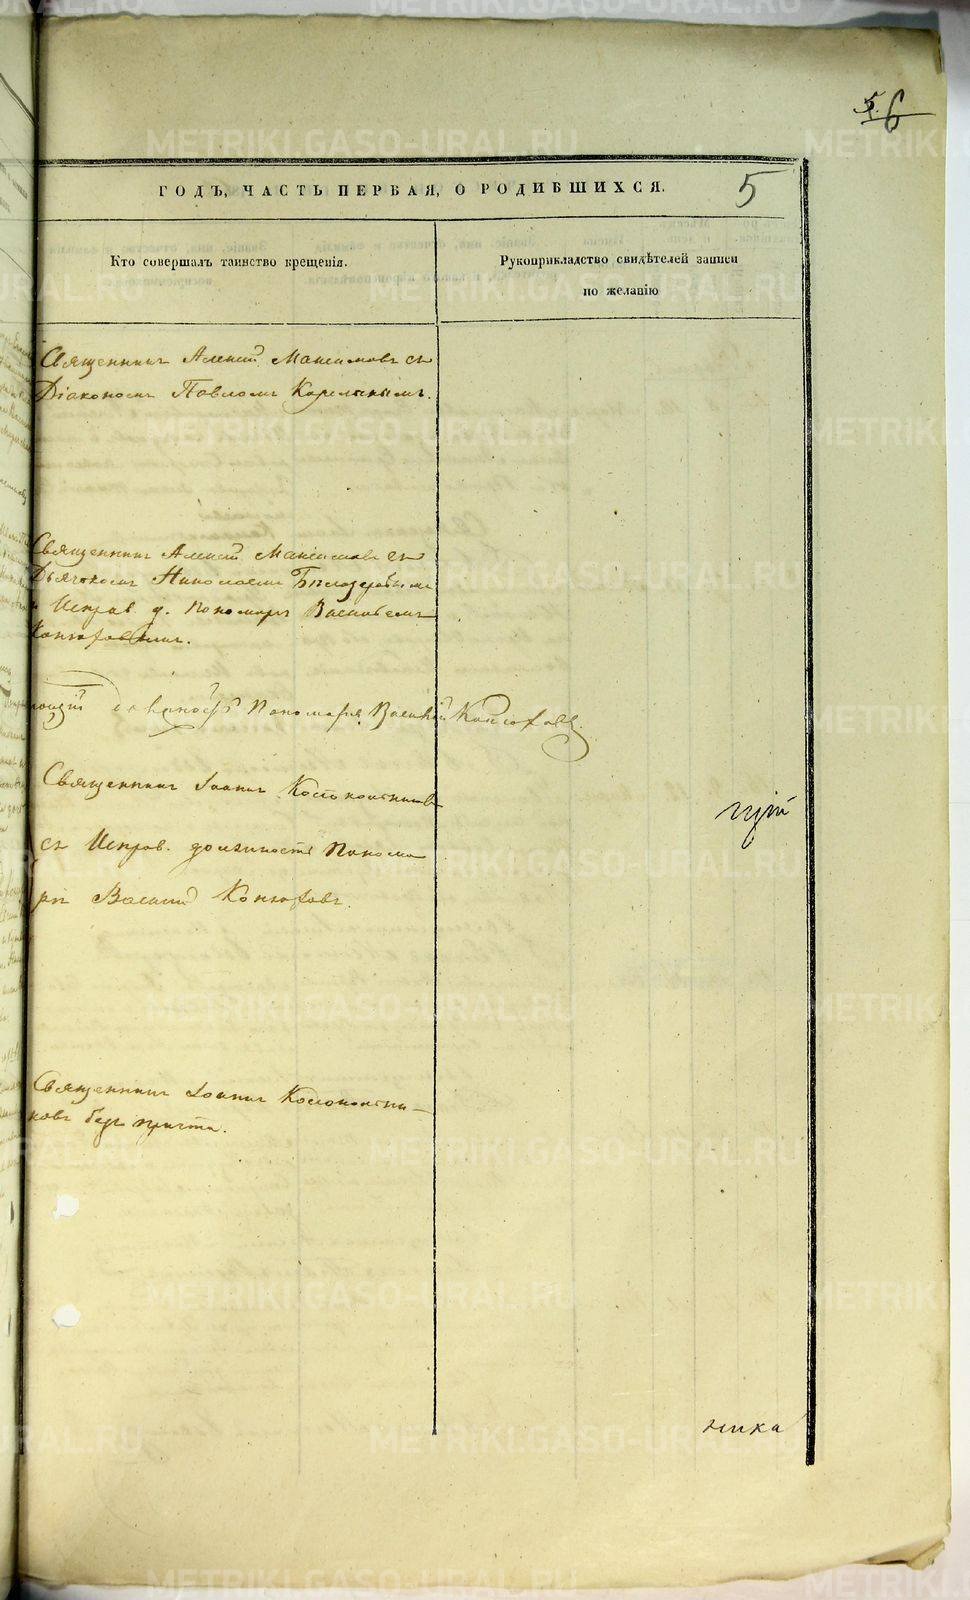 5. 6
ГОДЪ, ЧАСТЬ ПЕРВАЯ, О РОДИВШИХСЯ.
5
Кто совершалъ таинство крещенія.
Рукоприкладство свидѣтелей записи
по желанію
Священникъ Алексій Максимовъ съ
Діакономъ Павломъ Карелинымъ.
Священникъ Алексій Максимовъ съ
Дьячкомъ Николаемъ
и Исправ. д. Пономаря Васильемъ
Конюховымъ.
должность Пономаря Василій Конюховъ
Священникъ Іоаннъ
съ Исправ. должность Понома
ря Василій Конюховъ.
Священникъ Іоаннъ
ковъ безъ причта.
щій
ника
METRIKI.GASO-URAL.RU